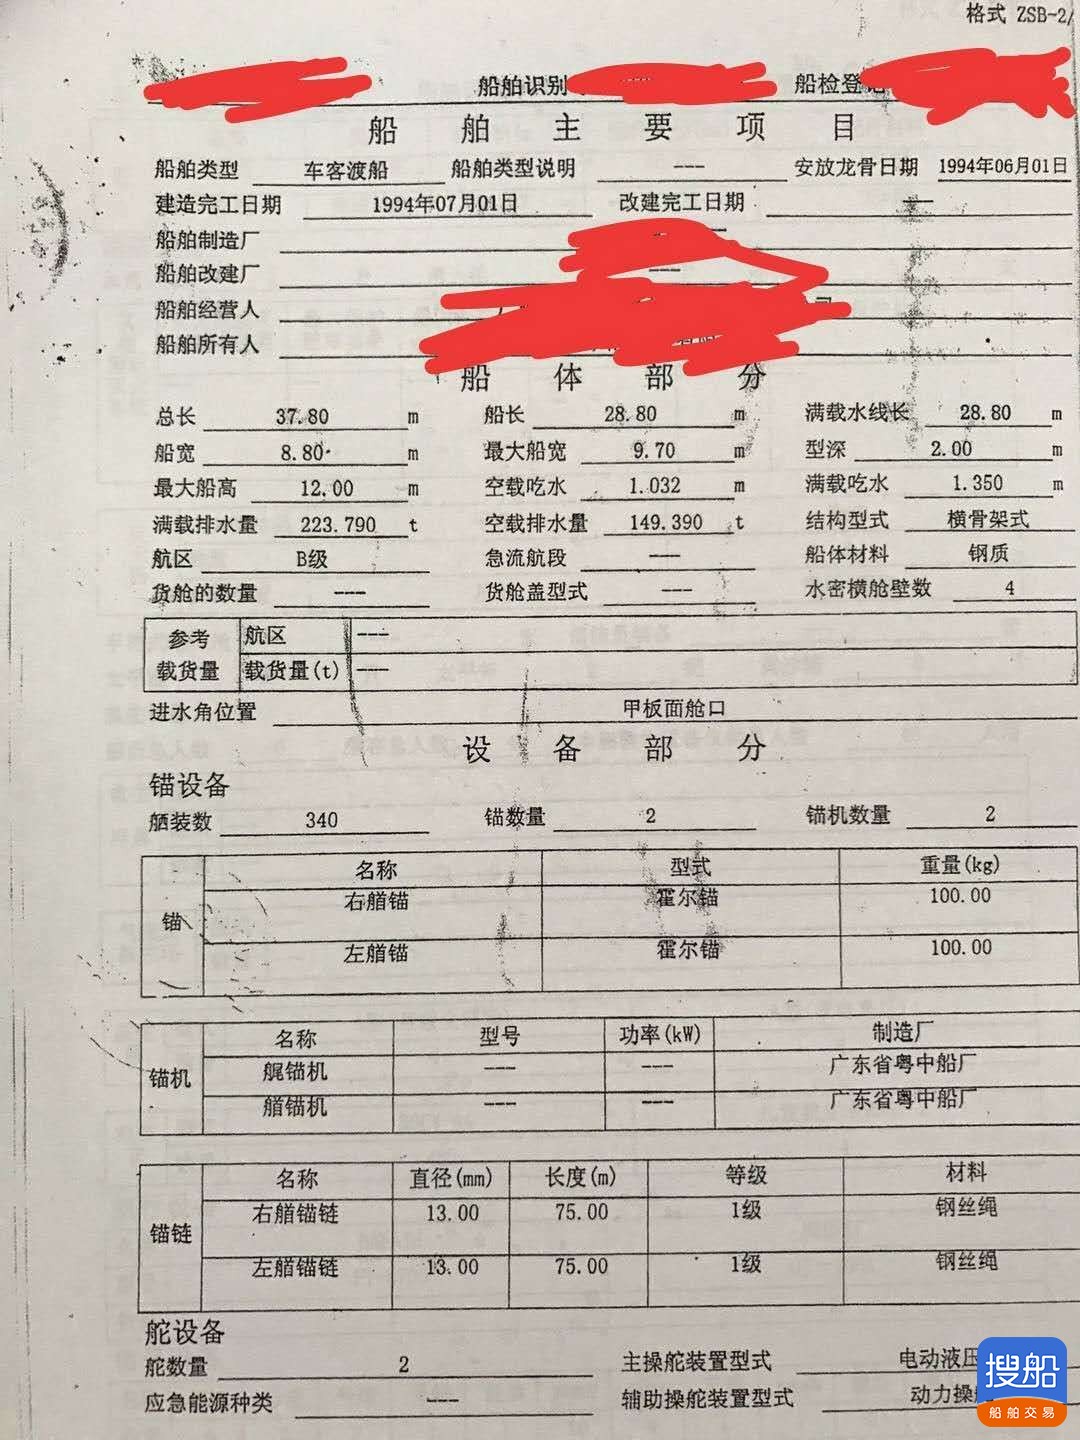 格式 ZSB-2/
船舶识别 船检登记
船舶主要项目
船舶类型 车客渡船 船舶类型说明 --- 安放龙骨日期 1994年06月01日
建造完工日期 1994年07月01日 改建完工日期 ---
船舶制造厂
船舶改建厂 ---
船舶经营人
船舶所有人
船体部分
总长 37.80 m 船长 28.80 m 满载水线长 28.80 m
船宽 8.80 m 最大船宽 9.70 m 型深 2.00 m
最大船高 12.00 m 空载吃水 1.032 m 满载吃水 1.350 m
满载排水量 223.790 t 空载排水量 149.390 t 结构型式 横骨架式
航区 B级 急流航段 --- 船体材料 钢质
货舱的数量 --- 货舱盖型式 --- 水密横舱壁数 4
参考载货量 航区 ---
载货量(t) ---
进水角位置 甲板面舱口
设备部分
锚设备
舾装数 340 锚数量 2 锚机数量 2
锚 名称 型式 重量(kg)
右艏锚 霍尔锚 100.00
左艏锚 霍尔锚 100.00
锚机 名称 型号 功率(kW) 制造厂
艉锚机 --- --- 广东省粤中船厂
艏锚机 --- --- 广东省粤中船厂
锚链 名称 直径(mm) 长度(m) 等级 材料
右艏锚链 13.00 75.00 1级 钢丝绳
左艏锚链 13.00 75.00 1级 钢丝绳
舵设备
舵数量 2 主操舵装置型式 电动液压
应急能源种类 --- 辅助操舵装置型式 动力操
搜船
船舶交易